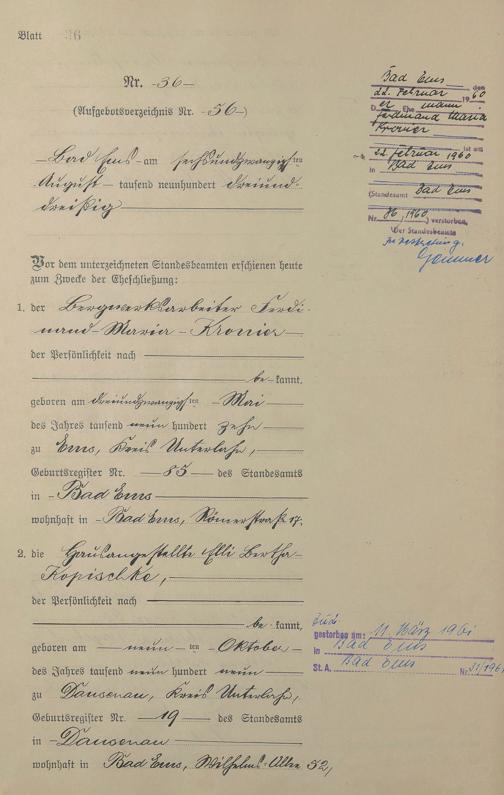 Blatt 36
Nr. -36-
(Aufgebotsverzeichnis Nr. -56-)
-Bad Ems- am sechsundzwanzigsten
August- tausend neunhundert dreiund-
dreißig
Vor dem unterzeichneten Standesbeamten erschienen heute
zum Zwecke der Eheschließung:
1. der Bergwerksarbeiter Ferdi-
nand-Maria-Kronier
der Persönlichkeit nach
be-kannt,
geboren am dreiundzwanzigsten -Mai
des Jahres tausend neun hundert zehn
zu Ems, Kreis Unterlahn,
Geburtsregister Nr. -85- des Standesamts
in -Bad Ems
wohnhaft in -Bad Ems, Römerstraße 17.
2. die Hausangestellte Elli Bertha-
Kopischke,
der Persönlichkeit nach
be-kannt,
geboren am -neun-ten -Oktober-
des Jahres tausend neun hundert neun
zu Dausenau, Kreis Unterlahn,
Geburtsregister Nr. -19- des Standesamts
in -Dausenau
wohnhaft in Bad Ems, Wilhelms-Allee 52,
Bad Ems, den
22. Februar 1960
Der Ehemann
Ferdinand Maria
Kronier
ist am
22. Februar 1960
in Bad Ems
(Standesamt Bad Ems
Nr. 36/1960) verstorben.
Der Standesbeamte
In Vertretung.
gestorben am: 11. März 1961
in Bad Ems
St. A. Bad Ems Nr.